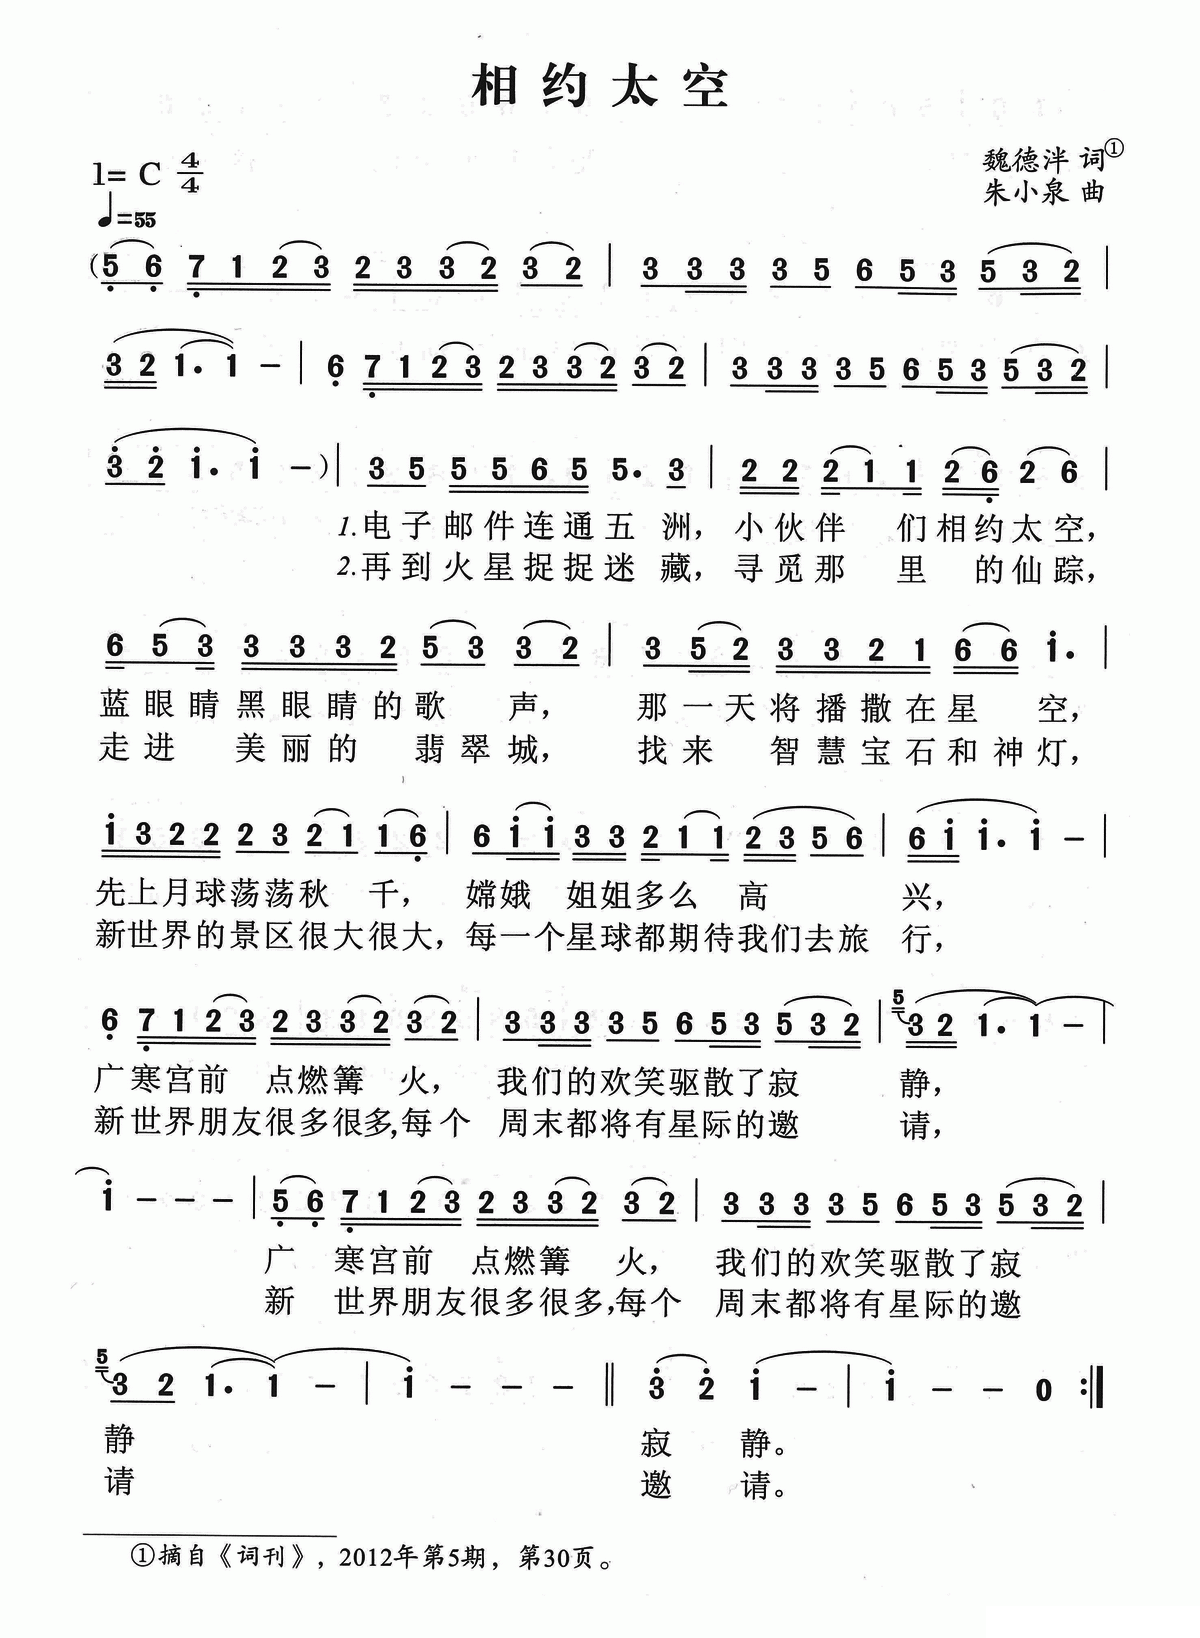 相约太空
1= C 4/4
魏德泮 词①
♩=55
朱小泉 曲
(5 6 7 1 2 3 2 3 3 2 3 2 | 3 3 3 3 5 6 5 3 5 3 2 |
3 2 1· 1 － | 6 7 1 2 3 2 3 3 2 3 2 | 3 3 3 3 5 6 5 3 5 3 2 |
3 2 1· 1 －) | 3 5 5 5 6 5 5· 3 | 2 2 2 1 1 2 6 2 6 |
1.电子邮件连通五 洲，小伙伴 们相约太空，
2.再到火星捉捉迷 藏，寻觅那 里 的仙踪，
6 5 3 3 3 3 2 5 3 3 2 | 3 5 2 3 3 2 1 6 6 1· |
蓝眼睛黑眼睛的歌 声， 那一天将播撒在星 空，
走进 美丽的 翡翠城， 找来 智慧宝石和神灯，
1 3 2 2 2 3 2 1 1 6 | 6 1 1 3 3 2 1 1 2 3 5 6 | 6 1 1· 1 － |
先上月球荡荡秋 千， 嫦娥 姐姐多么 高 兴，
新世界的景区很大很大，每一个星球都期待我们去旅 行，
6 7 1 2 3 2 3 3 2 3 2 | 3 3 3 3 5 6 5 3 5 3 2 | 5 3 2 1· 1 － |
广寒宫前 点燃篝 火， 我们的欢笑驱散了寂 静，
新世界朋友很多很多,每个 周末都将有星际的邀 请，
1 － － － | 5 6 7 1 2 3 2 3 3 2 3 2 | 3 3 3 3 5 6 5 3 5 3 2 |
广 寒宫前 点燃篝 火， 我们的欢笑驱散了寂
新 世界朋友很多很多,每个 周末都将有星际的邀
5 3 2 1· 1 － | 1 － － － ‖ 3 2 1 － | 1 － － 0 :‖
静 寂 静。
请 邀 请。
①摘自《词刊》，2012年第5期，第30页。